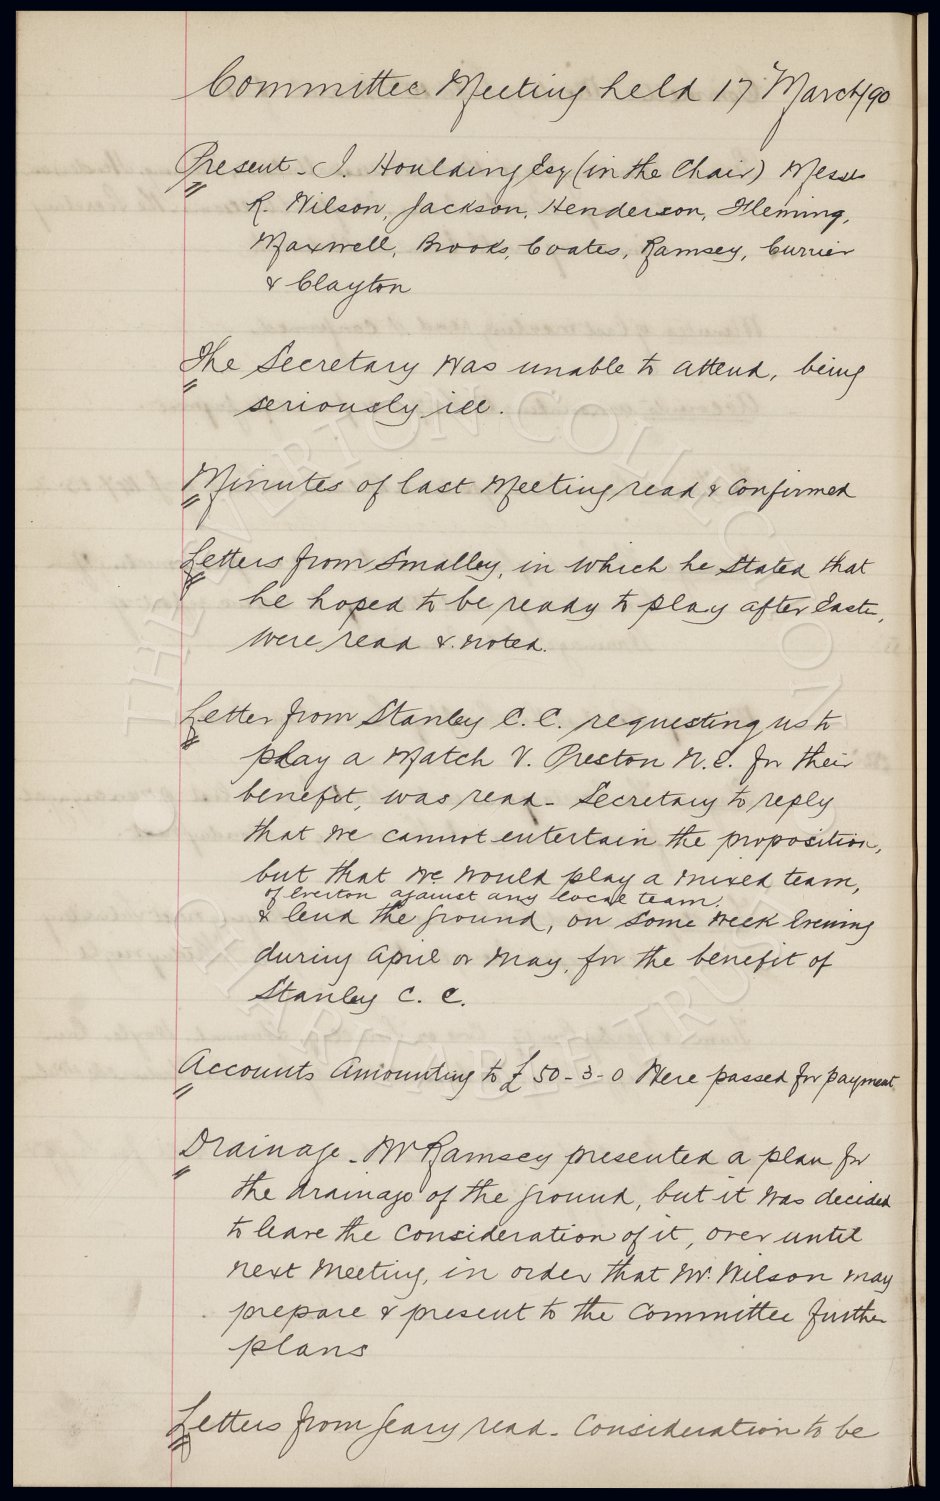 Committee Meeting held 17 March/90
Present - J. Houlding Esq (in the Chair) Messrs
R. Wilson, Jackson, Henderson, Fleming,
Maxwell, Brooks, Coates, Ramsey, Currier
& Clayton
The Secretary was unable to attend, being
seriously ill.
Minutes of last Meeting read & Confirmed
Letters from Smalley, in which he Stated that
he hoped to be ready to play after Easter,
were read & noted.
Letter from Stanley C. C. requesting us to
play a Match V. Preston N. E. for their
benefit, was read - Secretary to reply
that we cannot entertain the proposition,
but that we would play a mixed team,
of Everton against any local team.
& lend the ground, on some week Evening
during April or May, for the benefit of
Stanley C. C.
Accounts Amounting to £50-3-0 Were passed for payment
Drainage - Mr Ramsey presented a plan for
the drainage of the ground, but it was decided
to leave the consideration of it, over until
next Meeting, in order that Mr. Wilson may
prepare & present to the Committee further
plans
Letters from Geary read - Consideration to be
THE EVERTON COLLECTION
CHARITABLE TRUST